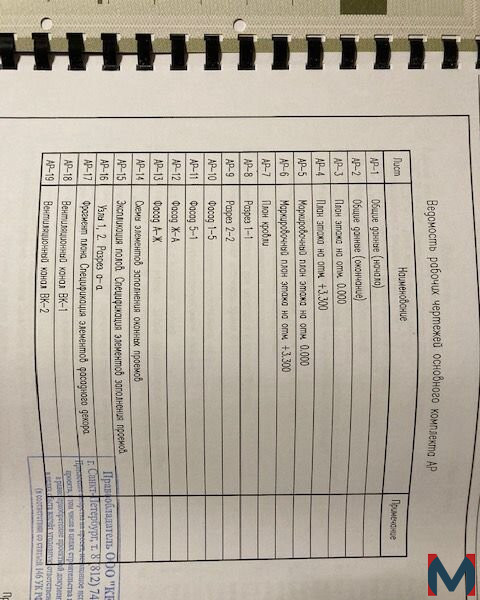 Ведомость рабочих чертежей основного комплекта АР
Лист Наименование Примечание
АР-1 Общие данные (начало)
АР-2 Общие данные (окончание)
АР-3 План этажа на отм. 0.000
АР-4 План этажа на отм. +3.300
АР-5 Маркировочный план этажа на отм. 0.000
АР-6 Маркировочный план этажа на отм. +3.300
АР-7 План кровли
АР-8 Разрез 1-1
АР-9 Разрез 2-2
АР-10 Фасад 1-5
АР-11 Фасад 5-1
АР-12 Фасад Ж-А
АР-13 Фасад А-Ж
АР-14 Схема элементов заполнения оконных проемов
АР-15 Экспликация полов. Спецификация элементов заполнения проемов.
АР-16 Узлы 1, 2. Разрез а-а
АР-17 Фрагмент плана. Спецификация элементов фасадного декора.
АР-18 Вентиляционный канал ВК-1
АР-19 Вентиляционный канал ВК-2
Правообладатель ООО "К
г. Санкт-Петербург, т. 8 (812) 74
(в соответствии со статьей 146 УК Р
М